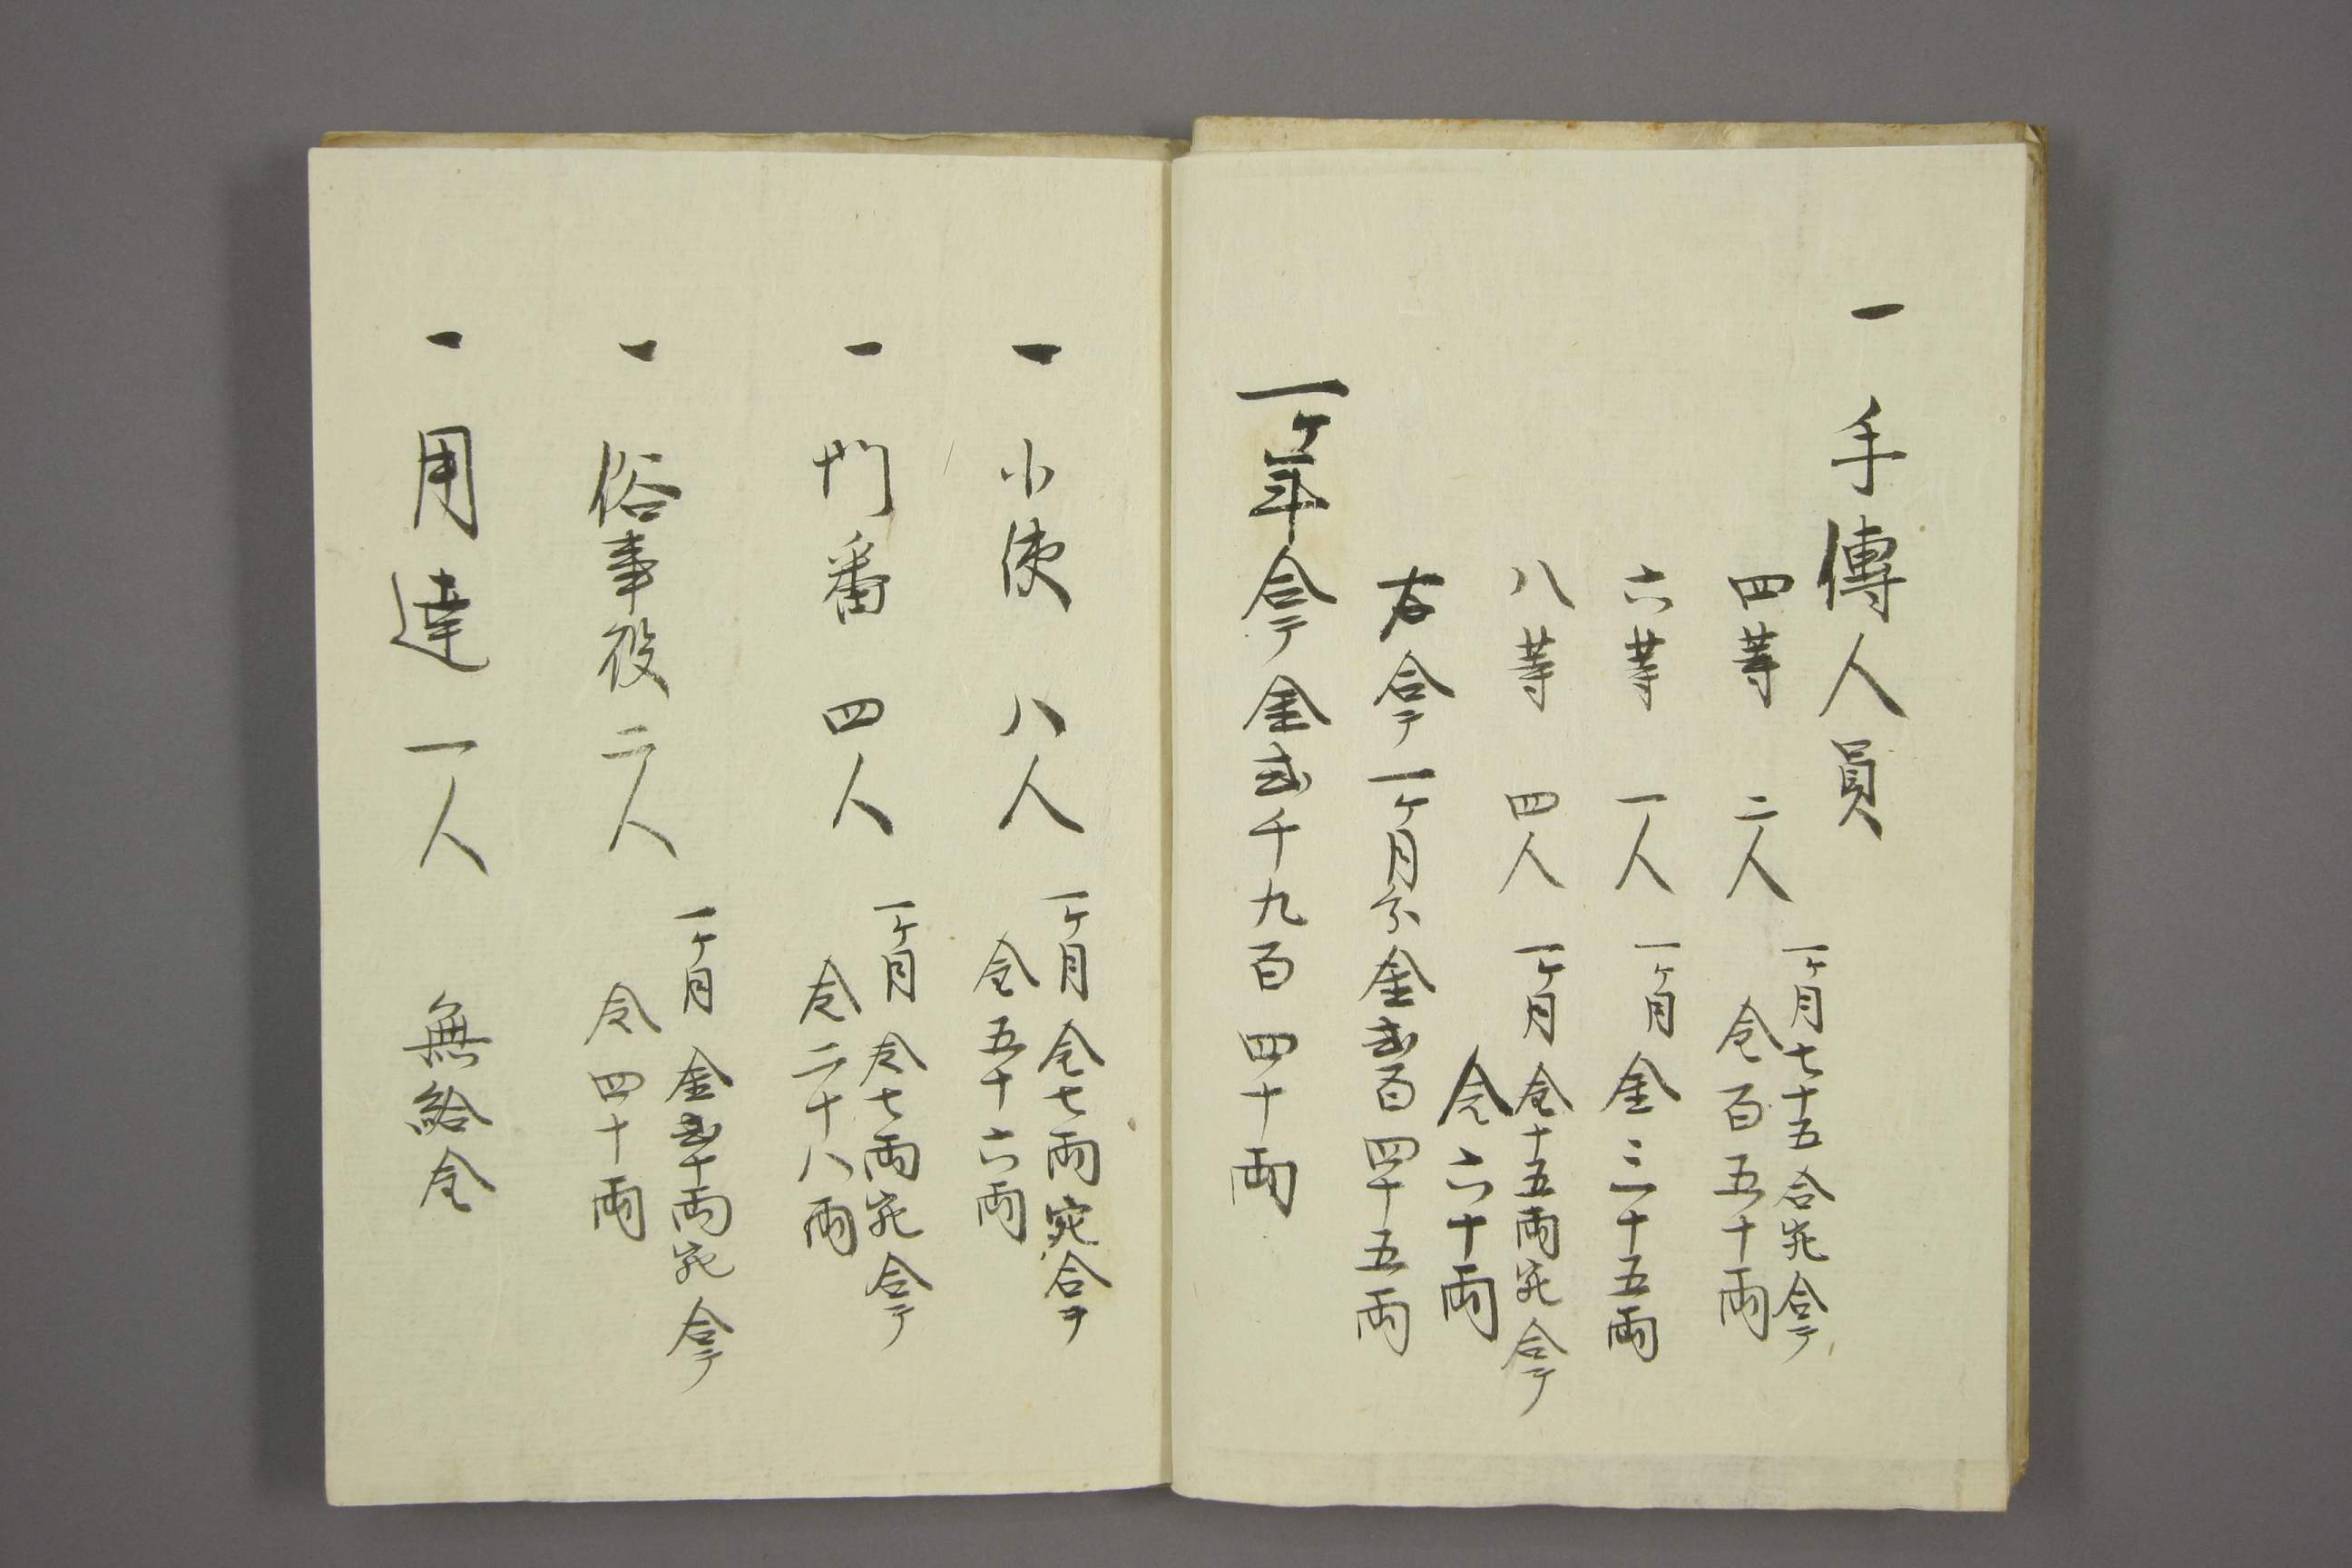 一 手傳人員
四等 二人 一ケ月七十五合宛合テ
金百五十両
六等 一人 一ケ月金三十五両
八等 四人 一ケ月金十五両宛合テ
金六十両
右合テ一ケ月分金弐百四十五両
一ケ年合テ金弐千九百四十両
一 小使 八人 一ケ月金七両宛合テ
金五十六両
一 門番 四人 一ケ月金七両宛合テ
金二十八両
一 俗事役 二人 一ケ月金弐十両宛合テ
金四十両
一 用達 一人 無給金